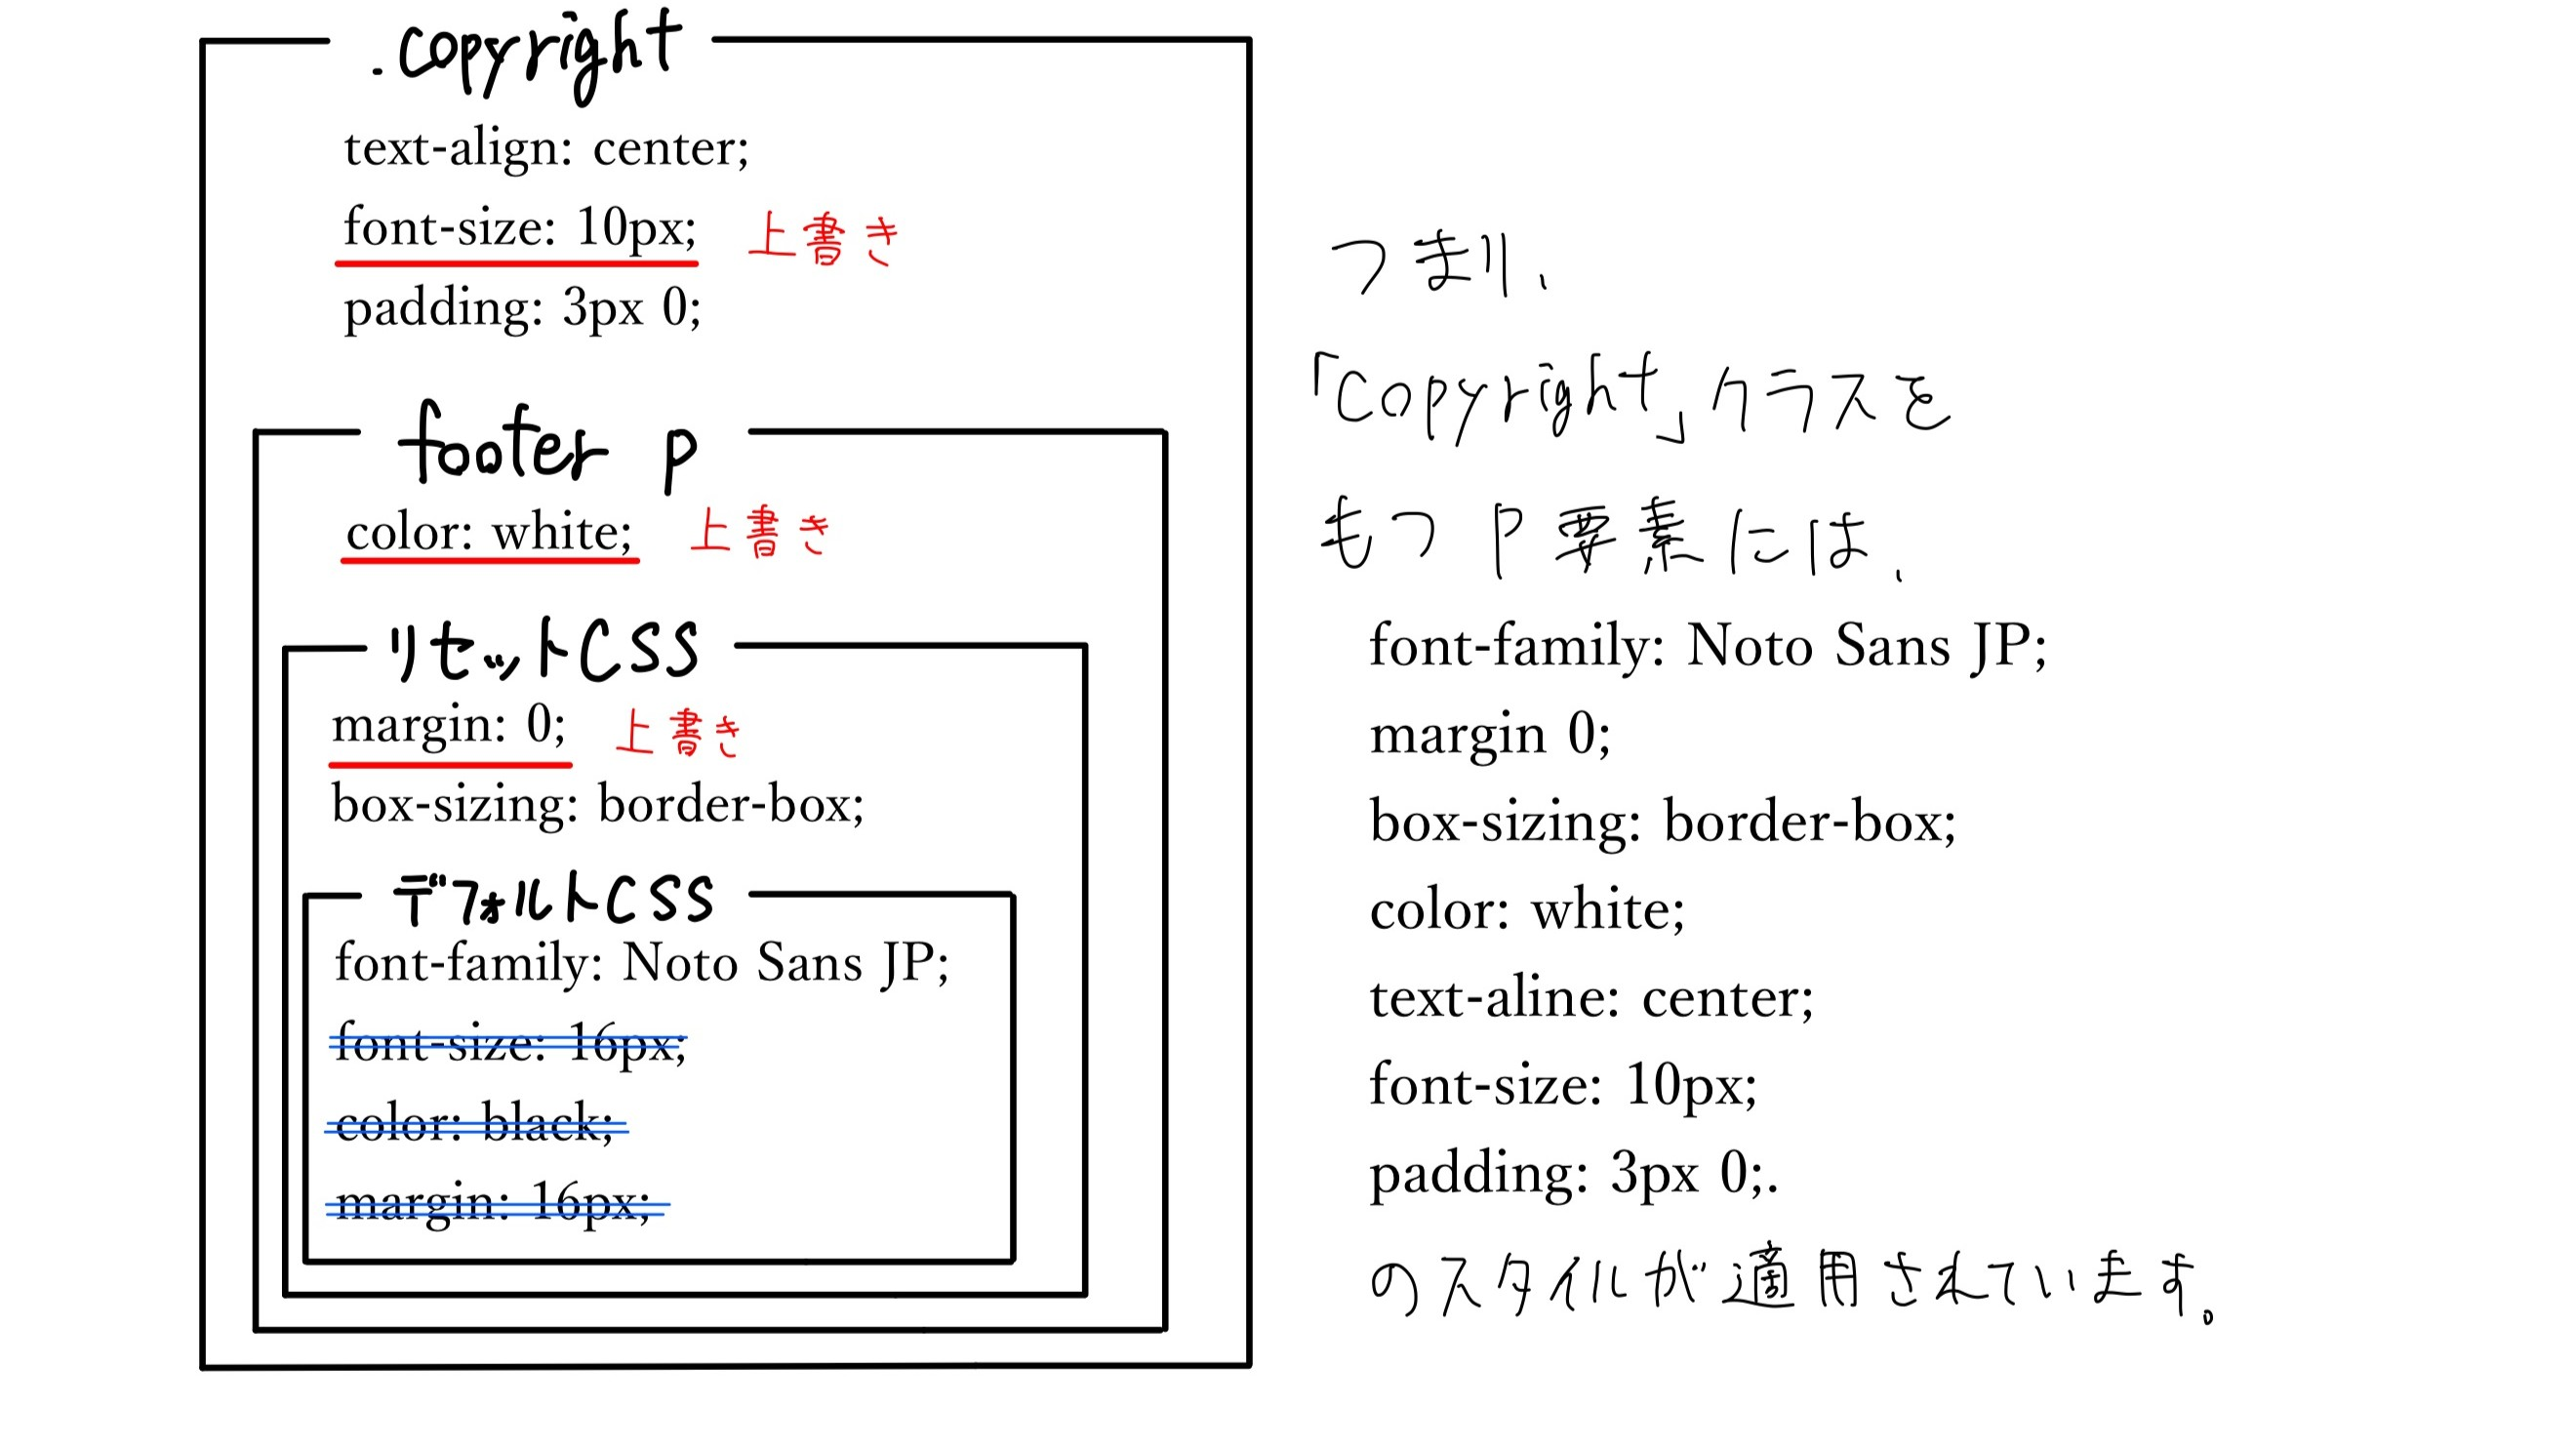 .copyright
text-align: center;
font-size: 10px; 上書き
padding: 3px 0;
footer p
color: white; 上書き
リセットCSS
margin: 0; 上書き
box-sizing: border-box;
デフォルトCSS
font-family: Noto Sans JP;
font-size: 16px;
color: black;
margin: 16px;
つまり、
「copyright」クラスを
もつP要素には、
font-family: Noto Sans JP;
margin 0;
box-sizing: border-box;
color: white;
text-aline: center;
font-size: 10px;
padding: 3px 0;.
のスタイルが適用されています。